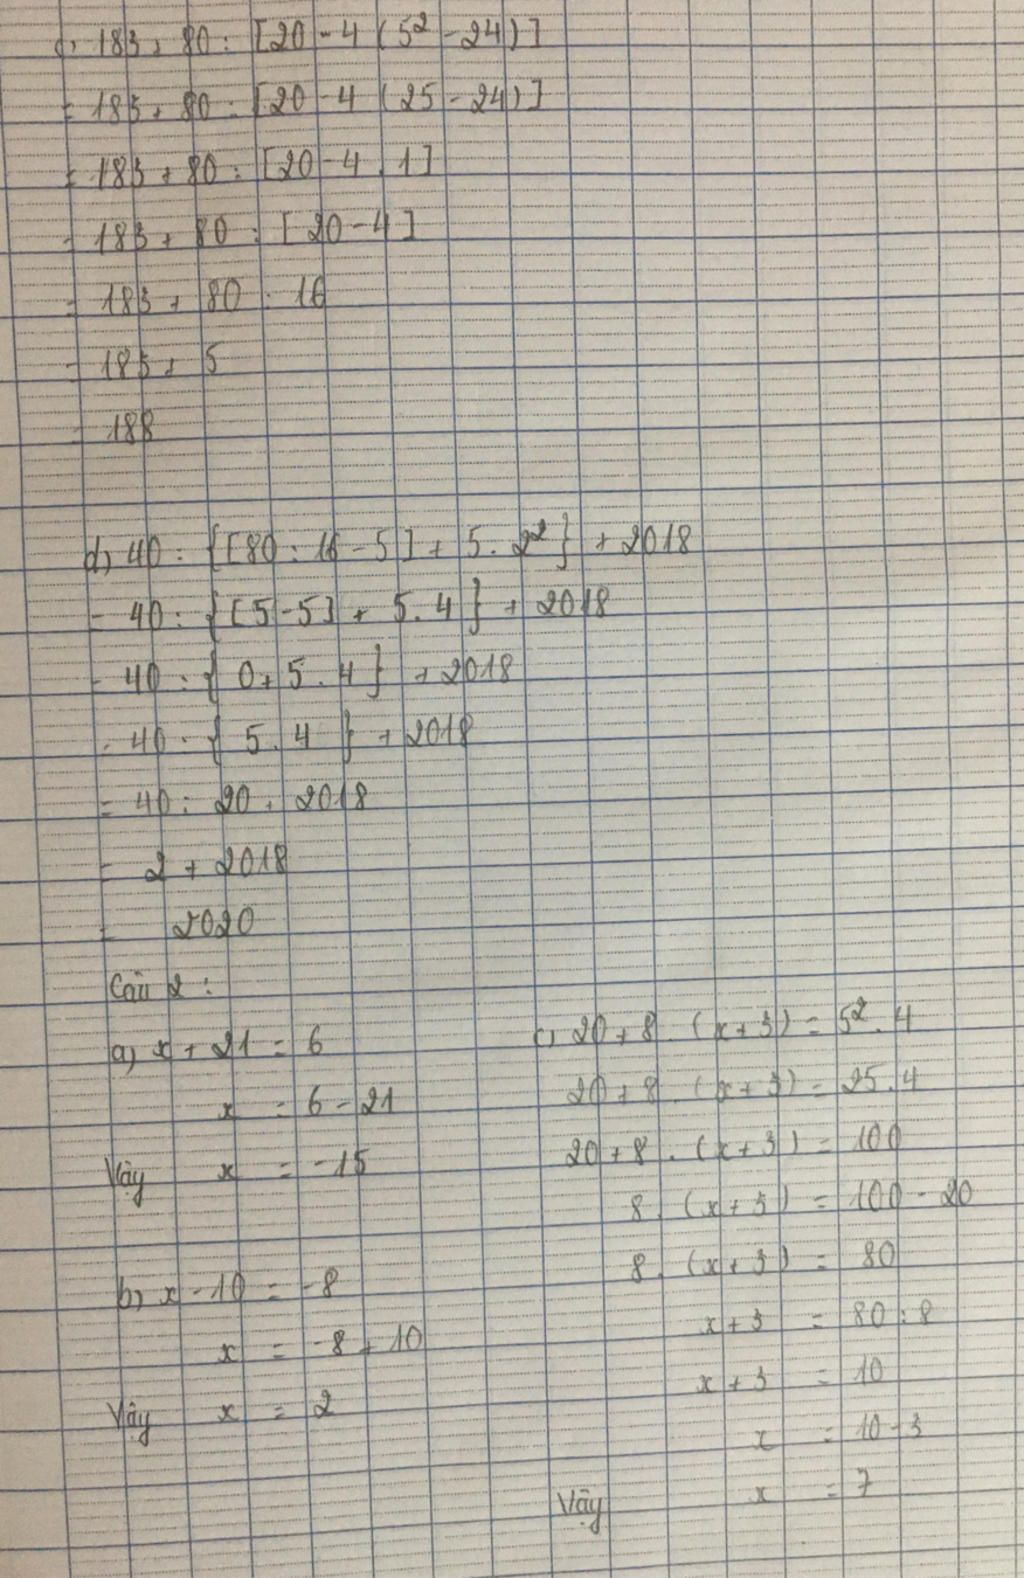 c, 183 + 80 : [20 - 4 (5² - 24)]
= 183 + 80 : [20 - 4 (25 - 24)]
= 183 + 80 : [20 - 4 . 1]
= 183 + 80 : [20 - 4]
= 183 + 80 : 16
= 183 + 5
= 188
d, 40 : {[80 : 16 - 5] + 5 . 2²} + 2018
= 40 : {[5 - 5] + 5 . 4} + 2018
= 40 : {0 + 5 . 4} + 2018
= 40 : {5 . 4} + 2018
= 40 : 20 + 2018
= 2 + 2018
= 2020
Câu 2 :
a, x + 21 = 6
x = 6 - 21
Vậy x = -15
b, x - 10 = -8
x = -8 + 10
Vậy x = 2
c, 20 + 8 . (x + 3) = 5² . 4
20 + 8 . (x + 3) = 25 . 4
20 + 8 . (x + 3) = 100
8 . (x + 3) = 100 - 20
8 . (x + 3) = 80
x + 3 = 80 : 8
x + 3 = 10
x = 10 - 3
Vậy x = 7